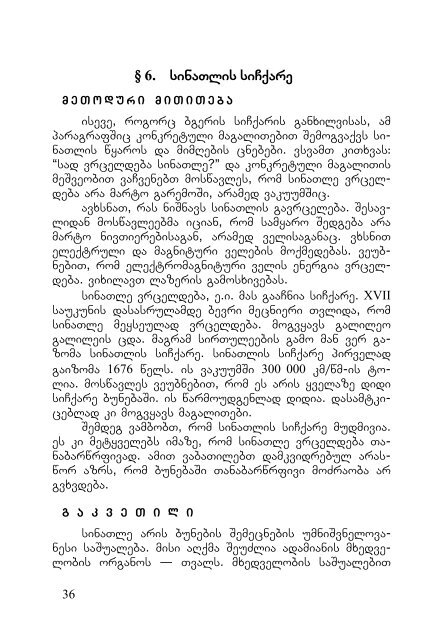 § 6. სინათლის სიჩქარე
მეთოდური მითითება
ისევე, როგორც ბგერის სიჩქარის განხილვისას, ამ
პარაგრაფშიც კონკრეტული მაგალითებით შემოგვაქვს სი-
ნათლის წყაროს და მიმღების ცნებები. ვსვამთ კითხვას:
“სად ვრცელდება სინათლე?” და კონკრეტული მაგალითის
მეშვეობით ვაჩვენებთ მოსწავლეს, რომ სინათლე ვრცელ-
დება არა მარტო გარემოში, არამედ ვაკუუმშიც.
ავხსნათ, რას ნიშნავს სინათლის გავრცელება. შესავ-
ლიდან მოსწავლეებმა იციან, რომ სამყარო შედგება არა
მარტო ნივთიერებისაგან, არამედ ველისაგანაც. ვხსნით
ელექტრული და მაგნიტური ველების მოქმედებას. ვეუბ-
ნებით, რომ ელექტრომაგნიტური ველის ენერგია ვრცელ-
დება. ვიხილავთ ლაზერის გამოსხივებას.
სინათლე ვრცელდება, ე.ი. მას გააჩნია სიჩქარე. XVII
საუკუნის დასასრულამდე ბევრი მეცნიერი თვლიდა, რომ
სინათლე მეყსეულად ვრცელდება. მოგვყავს გალილეო
გალილეის ცდა. მაგრამ სირთულეების გამო მან ვერ გა-
ზომა სინათლის სიჩქარე. სინათლის სიჩქარე პირველად
გაიზომა 1676 წელს. ის ვაკუუმში 300 000 კმ/წმ-ის ტო-
ლია. მოსწავლეს ვეუბნებით, რომ ეს არის ყველაზე დიდი
სიჩქარე ბუნებაში. ის წარმოუდგენლად დიდია. დასამტკი-
ცებლად კი მოგვყავს მაგალითები.
შემდეგ ვამბობთ, რომ სინათლის სიჩქარე მუდმივია.
ეს კი მეტყველებს იმაზე, რომ სინათლე ვრცელდება თა-
ნაბარწრფივად. ამით ვაბათილებთ დამკვიდრებულ არას-
წორ აზრს, რომ ბუნებაში თანაბარწრფივი მოძრაობა არ
გვხვდება.
გაკვეთილი
სინათლე არის ბუნების შემეცნების უმნიშვნელოვა-
ნესი საშუალება. მისი აღქმა შეუძლია ადამიანის მხედვე-
ლობის ორგანოს — თვალს. მხედველობის საშუალებით
36